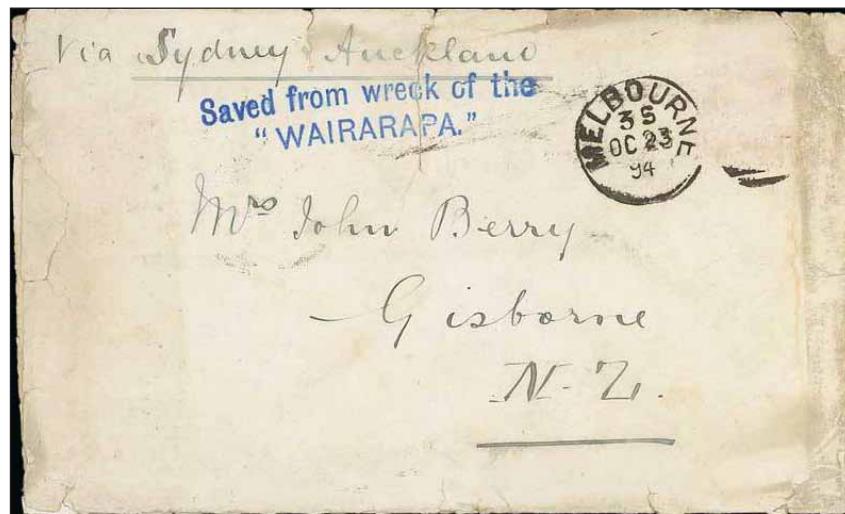 Via Sydney Auckland
Saved from wreck of the
"WAIRARAPA."
MELBOURNE
3S
OC 23
94
Mrs John Berry
Gisborne
N-Z.